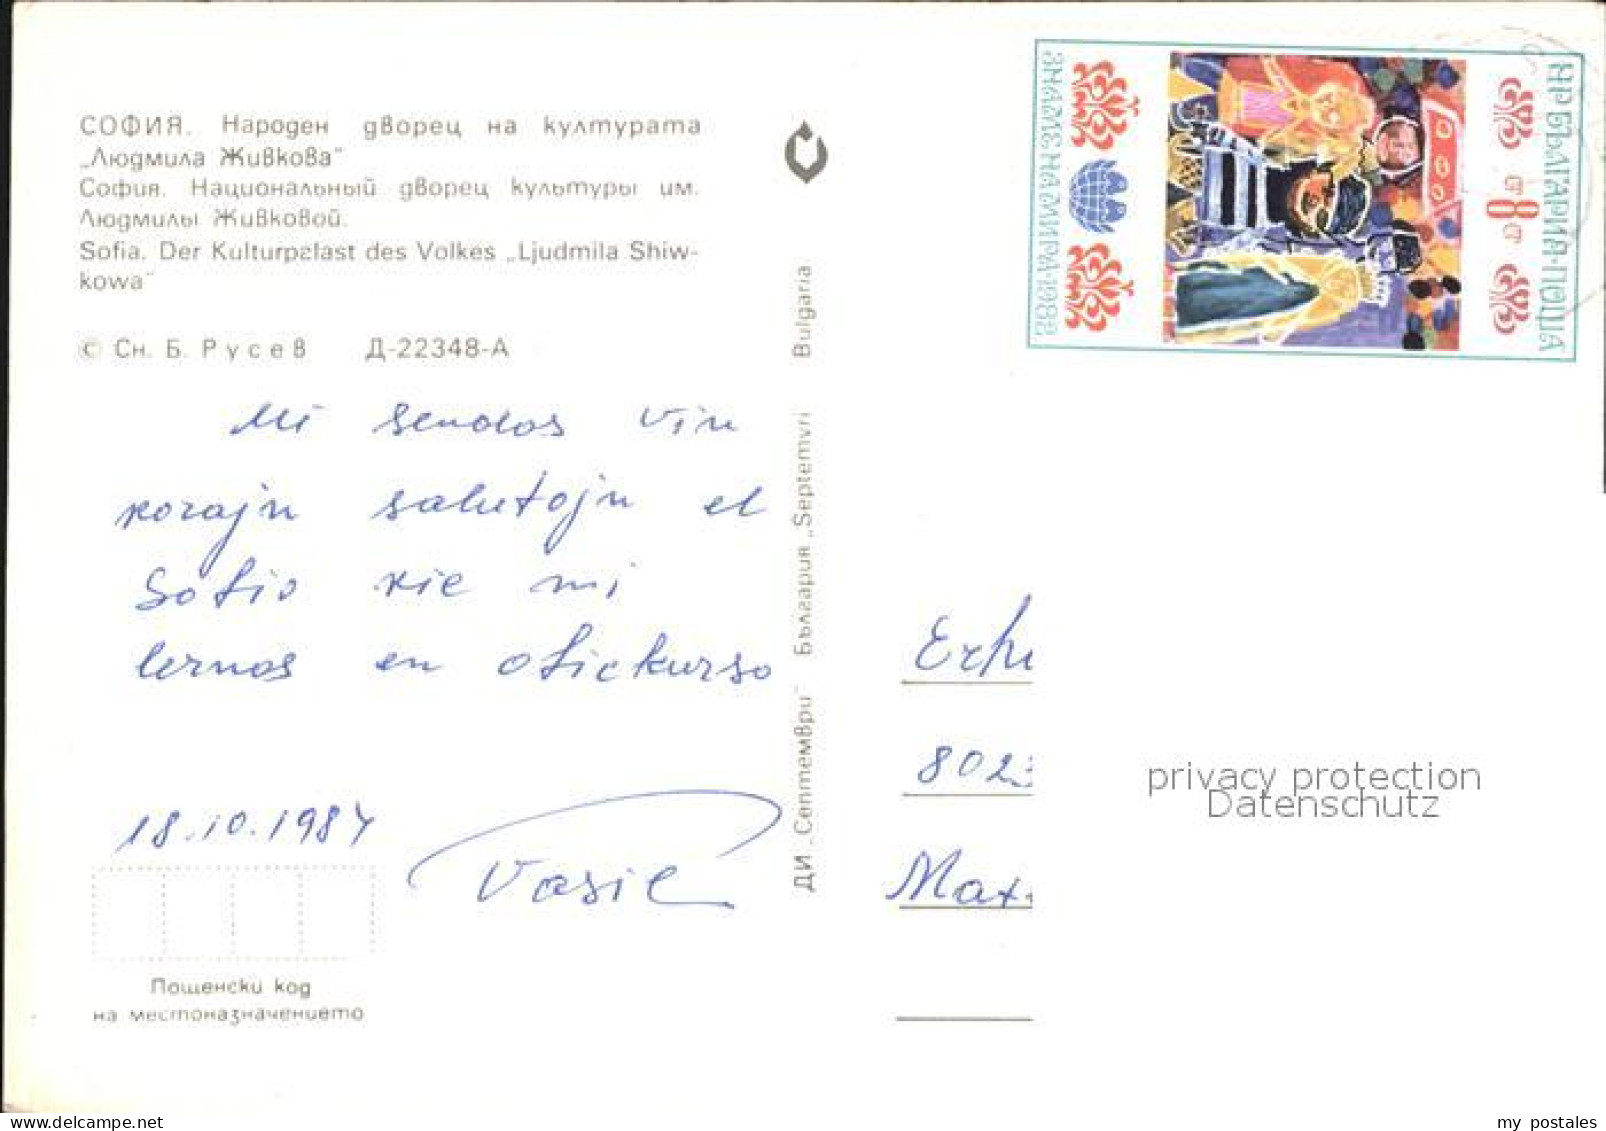 СОФИЯ. Народен дворец на културата
„Людмила Живкова"
София. Национальный дворец культуры им.
Людмилы Живковой.
Sofia. Der Kulturpalast des Volkes „Ljudmila Shiw-
kowa"
© Сн. Б. Русев Д-22348-А
Mi sendas vin
korajn salutojn el
Sofio kie mi
lernas en ofickurso
18.10.1984
Vasil
Пощенски код
на местоназначението
ДИ „Септември" България „Septemvri" Bulgaria
НР БЪЛГАРИЯ·ПОЩА
8 СТ
ЗНАМЕ НА МИРА·1982
8023
Max
privacy protection
Datenschutz
my postales